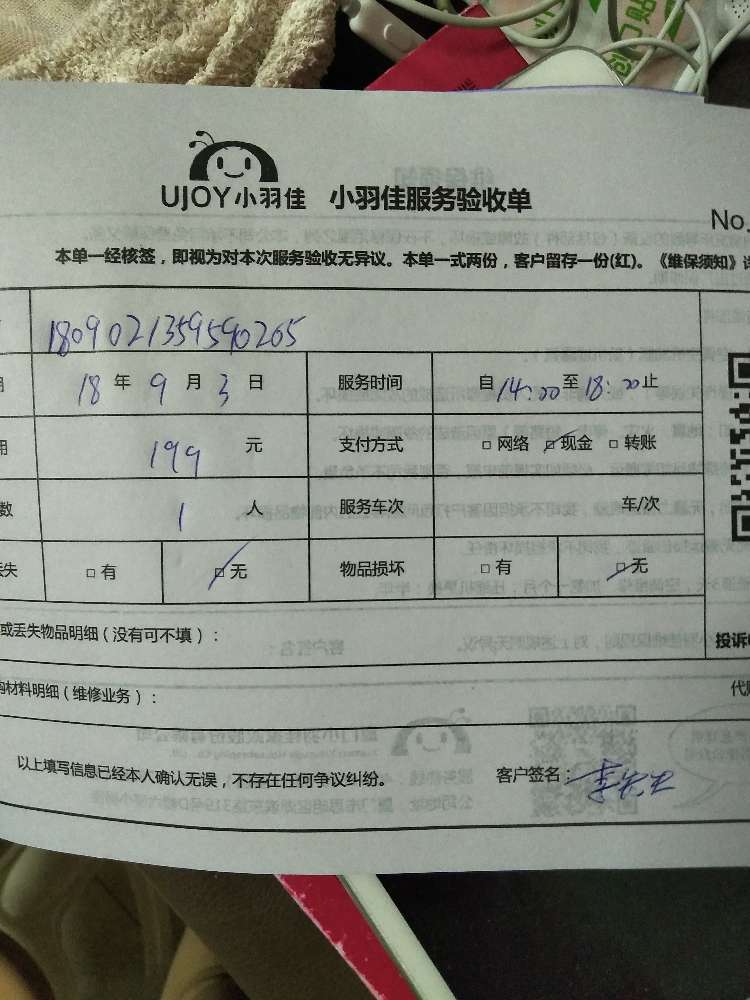 UJOY小羽佳 小羽佳服务验收单
No.
本单一经核签，即视为对本次服务验收无异议。本单一式两份，客户留存一份(红)。《维保须知》
1809021359590265
18 年 9 月 3 日 服务时间 自 14:00 至 18:00 止
用 199 元 支付方式 □ 网络 □ 现金 □ 转账
数 1 人 服务车次 车/次
丢失 □ 有 □ 无 物品损坏 □ 有 □ 无
或丢失物品明细（没有可不填）：
投诉
购材料明细（维修业务）：
代
以上填写信息已经本人确认无误，不存在任何争议纠纷。 客户签名：